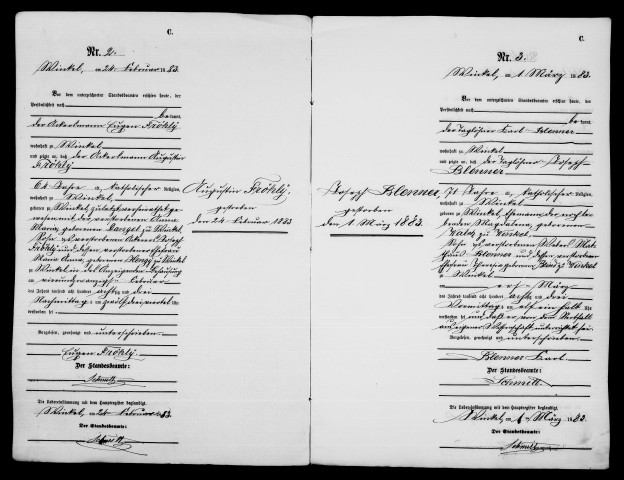 C.
Nr. 2.
Winkel, am 24 Februar 1883.
Vor dem unterzeichneten Standesbeamten erschien heute, der
Persönlichkeit nach
be kannt,
der Ackersmann Eugen Fröhly
wohnhaft zu Winkel
und zeigte an, daß der Ackersmann Augustin
Fröhly
64 Jahre a, katholischer Religion,
wohnhaft zu Winkel,
geboren zu Winkel, zuletzt verheirathet
gewesen mit der verstorbenen Anna
Maria, geborenen zu Winkel
Sohn des verstorbenen Ackerers Joseph
Fröhly und dessen verstorbenen Ehefrau
Maria Anna, geborenen zu Winkel
zu Winkel in des Anzeigenden Behausung
am vierundzwanzigsten Februar
des Jahres tausend acht hundert achtzig und drei
Nachmittag um zwölf drei viertel Uhr
verstorben sei
Vorgelesen, genehmigt und unterschrieben.
Eugen Fröhly.
Der Standesbeamte:
Schmitt
Die Uebereinstimmung mit dem Hauptregister beglaubigt.
Winkel, am 24 Februar 1883.
Der Standesbeamte:
Schmitt
Augustin Fröhly,
gestorben
den 24 Februar 1883
C.
Nr. 3.
Winkel, am 1 März 1883.
Vor dem unterzeichneten Standesbeamten erschien heute, der
Persönlichkeit nach
be kannt,
der Taglöhner Karl Blenner
wohnhaft zu Winkel
und zeigte an, daß der Taglöhner Joseph
Blenner
71 Jahre a, katholischer Religion,
wohnhaft zu Winkel
geboren zu Winkel, Ehemann der
Magdalena, geborenen
zu Winkel
Sohn des verstorbenen
Blenner und dessen verstorbenen
Ehefrau Theresia geborenen zu Winkel
zu Winkel
am ersten März
des Jahres tausend acht hundert achtzig und drei
Vormittag um elf ein halb Uhr
verstorben sei und daß er von dem Sterbfall
aus eigener Wissenschaft unterrichtet sei.
Vorgelesen, genehmigt und unterschrieben.
Blenner Karl
Der Standesbeamte:
Schmitt
Die Uebereinstimmung mit dem Hauptregister beglaubigt.
Winkel, am 1 März 1883.
Der Standesbeamte:
Schmitt
Joseph Blenner,
gestorben
den 1 März 1883.